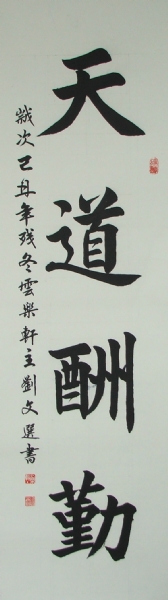 天道酬勤
歲次己丑年残冬雲樂軒主劉文選書